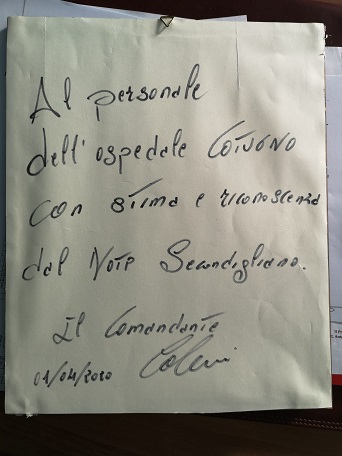 Al personale
dell'ospedale COTUGNO
con stima e riconoscenza
dal NOTP Secondigliano.
Il Comandante
01/04/2020